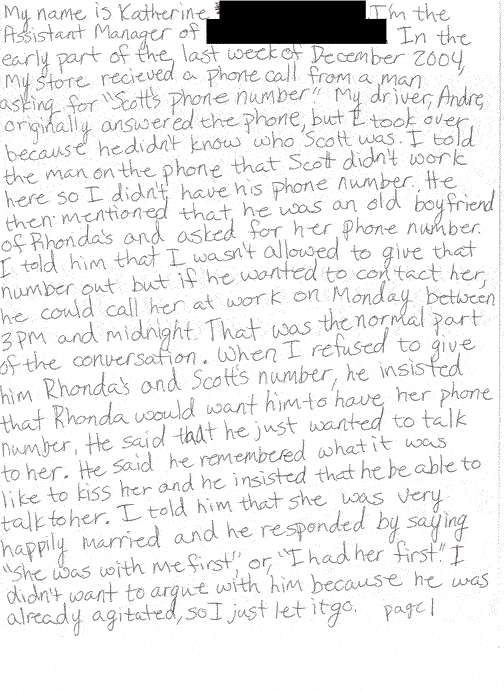 My name is Katherine I'm the
Assistant Manager of In the
early part of the, last week of December 2004,
My store recieved a phone call from a man
asking for "Scott's phone number." My driver, Andre,
originally answered the phone, but I took over
because he didn't know who Scott was. I told
the man on the phone that Scott didn't work
here so I didn't have his phone number. He
then mentioned that he was an old boyfriend
of Rhonda's and asked for her phone number.
I told him that I wasn't allowed to give that
number out but if he wanted to contact her,
he could call her at work on Monday between
3PM and midnight. That was the normal part
of the conversation. When I refused to give
him Rhonda's and Scott's number, he insisted
that Rhonda would want him to have her phone
number. He said that he just wanted to talk
to her. He said he remembered what it was
like to kiss her and he insisted that he be able to
talk to her. I told him that she was very
happily married and he responded by saying
"she was with me first", or, "I had her first." I
didn't want to argue with him because he was
already agitated, so I just let it go. page 1